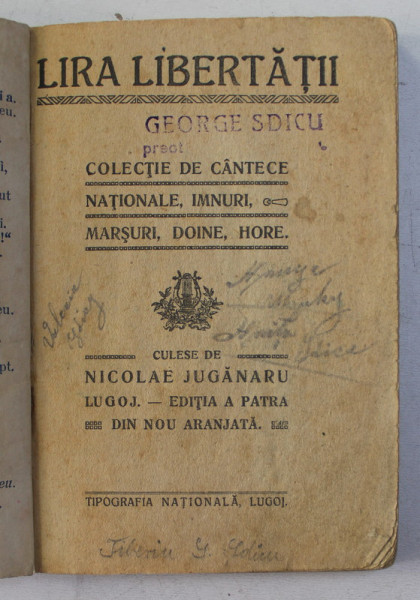 LIRA LIBERTĂȚII
GEORGE SDICU
preot
COLECȚIE DE CÂNTECE
NAȚIONALE, IMNURI,
MARȘURI, DOINE, HORE.
CULESE DE
NICOLAE JUGĂNARU
LUGOJ. — EDIȚIA A PATRA
DIN NOU ARANJATĂ.
TIPOGRAFIA NAȚIONALĂ, LUGOJ.
Tiberiu G.